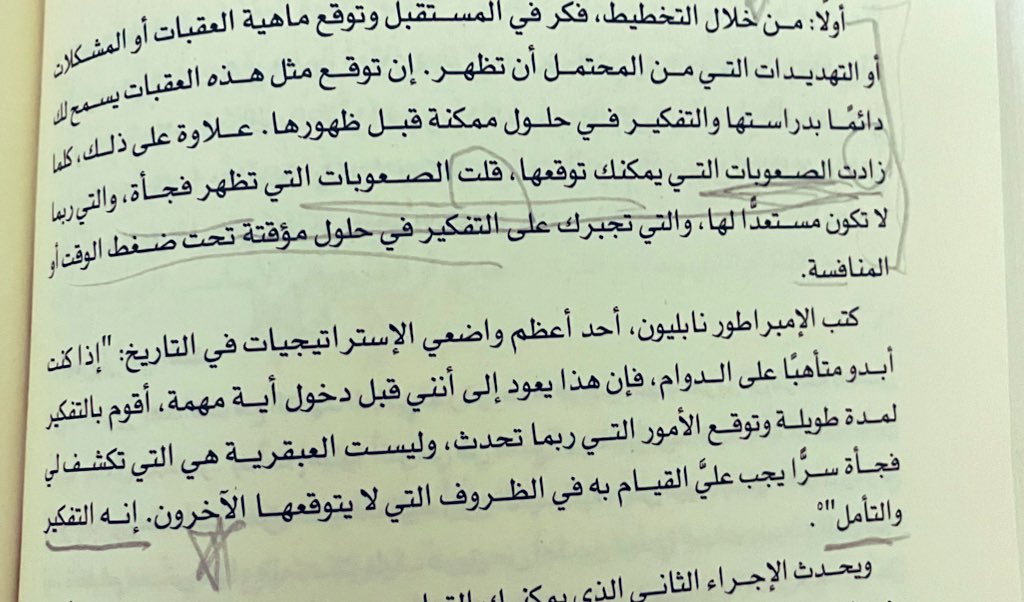 أولًا: من خلال التخطيط، فكر في المستقبل وتوقع ماهية العقبات أو المشكلات
أو التهديدات التي من المحتمل أن تظهر. إن توقع مثل هذه العقبات يسمح لك
دائمًا بدراستها والتفكير في حلول ممكنة قبل ظهورها. علاوة على ذلك، كلما
زادت الصعوبات التي يمكنك توقعها، قلت الصعوبات التي تظهر فجأة، والتي ربما
لا تكون مستعدًّا لها، والتي تجبرك على التفكير في حلول مؤقتة تحت ضغط الوقت أو
المنافسة.
كتب الإمبراطور نابليون، أحد أعظم واضعي الإستراتيجيات في التاريخ: "إذا كنت
أبدو متأهبًا على الدوام، فإن هذا يعود إلى أنني قبل دخول أية مهمة، أقوم بالتفكير
لمدة طويلة وتوقع الأمور التي ربما تحدث، وليست العبقرية هي التي تكشف لي
فجأة سرًّا يجب عليَّ القيام به في الظروف التي لا يتوقعها الآخرون. إنه التفكير
والتأمل"°.
ويحدث الإجراء الثاني الذي يمكنك